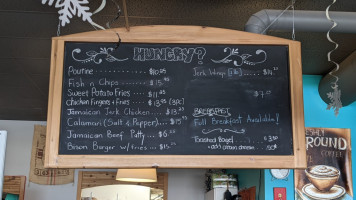 HUNGRY?
Poutine $10.95
Fish n Chips $15.95
Sweet Potato Fries $11
Chicken Fingers + Fries $13.95 (3PC)
Jamaican Jerk Chicken $13.95
Calamari (Salt & Pepper) $15.95
Jamaican Beef Patty $6
Bison Burger w/ fries $15
Jerk Wings
BREAKFAST
Full Breakfast Available!
Toasted Bagel $3.50
+ add cream cheese
ROUND
COFFEE